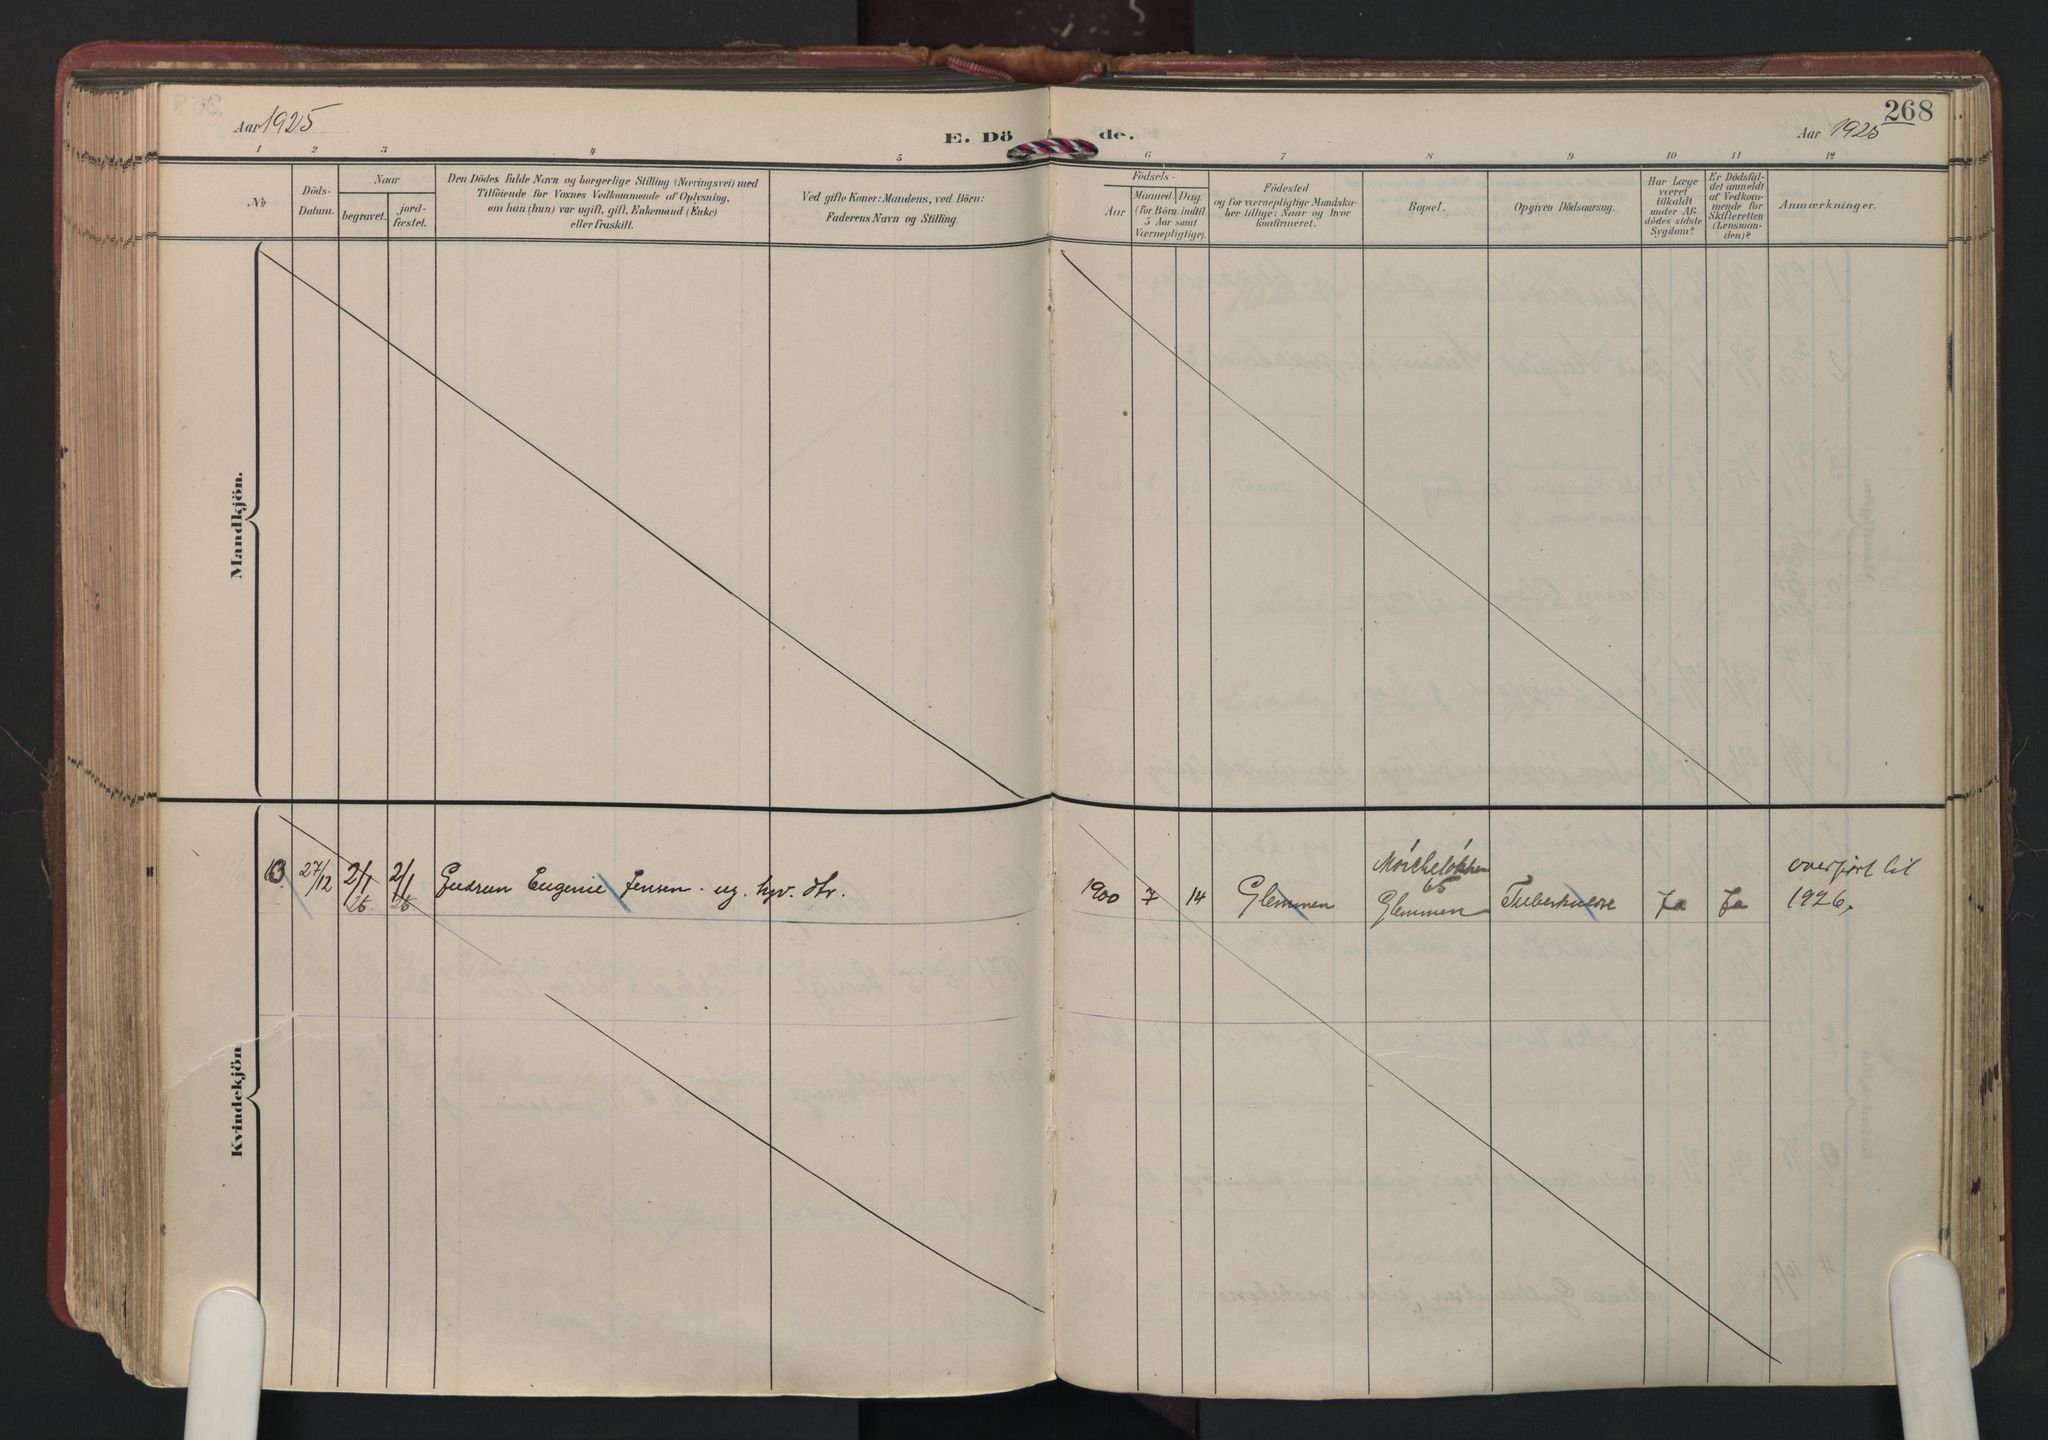 268
Aar 1925
E. Dö
de.
Aar 1925
1 2 3 4 5 6 7 8 9 10 11 12
No
Döds-
Datum.
Naar
begravet.
jord-
fæstet.
Den Dödes fulde Navn og borgerlige Stilling (Næringsvei) med
Tilföiende for Voxnes Vedkommende af Oplysning,
om han (hun) var ugift, gift, Enkemand (Enke)
eller fraskilt.
Ved gifte Koner: Mandens, ved Börn:
Faderens Navn og Stilling.
Födsels-
Aar
Maaned
Dag
(for Börn indtil
5 Aar samt
Værnepligtige).
Födested
og for værnepligtige Mandska-
ber tillige: Naar og hvor
konfirmeret.
Bopæl.
Opgiven Dödsaarsag.
Har Læge
været
tilkaldt
under Af-
dödes sidste
Sygdom?
Er Dödsfal-
det anmeldt
af Vedkom-
mende for
Skifteretten
(Lensman-
den)?
Anmærkninger.
Mandkjön.
Kvindekjön
27/12 2/1 26 2/1 26 Gudrun Eugenie Jensen ug. hyv. dtr. 1900 7 14 Glemmen
65
Glemmen
Tuberkulose Ja Ja
overført til
1926.